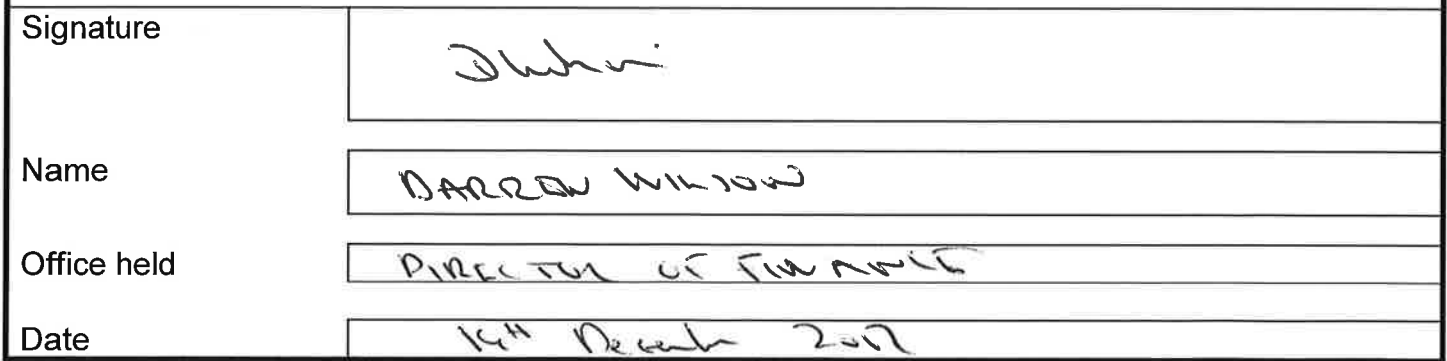 Signature
Name DARREN WILSON
Office held DIRECTOR OF FINANCE
Date December